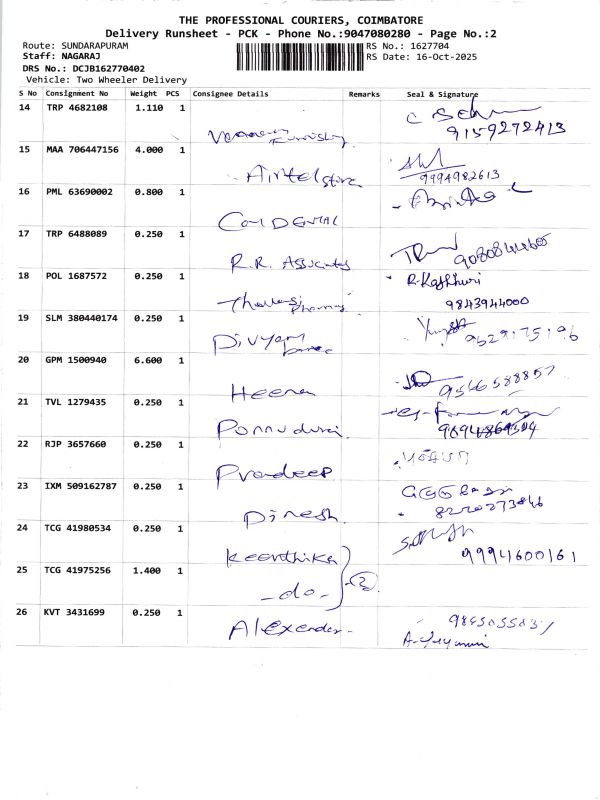 THE PROFESSIONAL COURIERS, COIMBATORE
Delivery Runsheet - PCK - Phone No.:9047080280 - Page No.:2
Route: SUNDARAPURAM
Staff: NAGARAJ
DRS No.: DCJB162770402
Vehicle: Two Wheeler Delivery
RS No.: 1627704
RS Date: 16-Oct-2025
S No Consignment No Weight PCS Consignee Details Remarks Seal & Signature
14 TRP 4682108 1.110 1
9159272413
15 MAA 706447156 4.000 1
Airtel store
9994982613
16 PML 63690002 0.800 1
DENTAL
17 TRP 6488089 0.250 1
R.R. Associates
9080844605
18 POL 1687572 0.250 1
R. Kasthuri
9843944000
19 SLM 380440174 0.250 1
Divyam
9629175196
20 GPM 1500940 6.600 1
Heena
9566588857
21 TVL 1279435 0.250 1
Ponnudurai
22 RJP 3657660 0.250 1
Pradeep
23 IXM 509162787 0.250 1
Dinesh
8220273846
24 TCG 41980534 0.250 1
Keerthika
9994160016 1
25 TCG 41975256 1.400 1
-do- (2)
26 KVT 3431699 0.250 1
Alexander